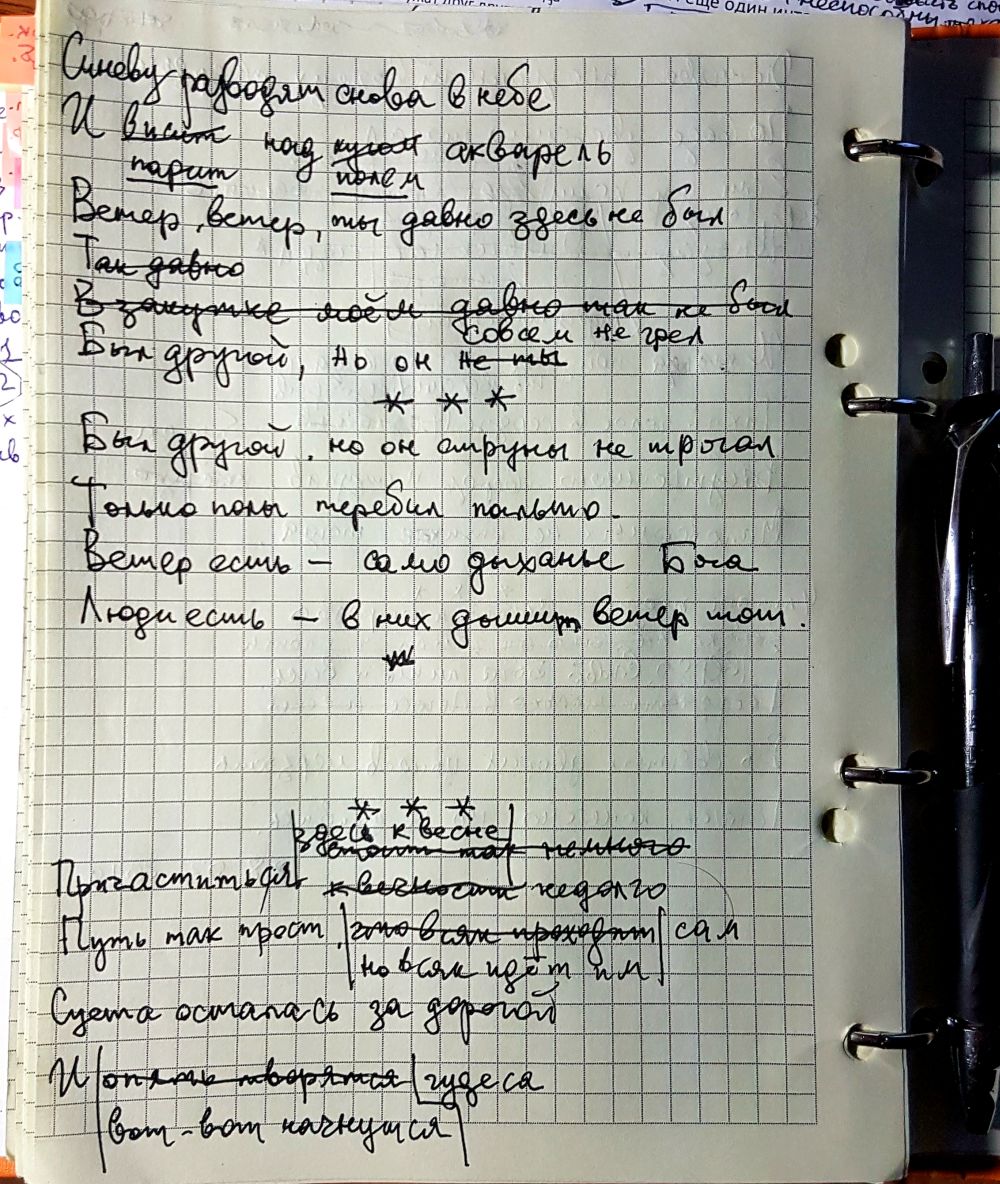 Синеву разводят снова в небе
И висит над кугом акварель
парит полем
Ветер, ветер, ты давно здесь не был
Так давно
В закутке моём давно так не был
совсем не грел
Был другой, но он не ты
* * *
Был другой, но он струны не трогал
Только полы теребил пальто.
Ветер есть – само дыханье Бога
Люди есть – в них дышит ветер тот.
* * *
здесь к весне
стоит так немного
Причаститься к вечности недолго
Путь так прост, что всяк проходит сам
но всяк идёт им
Суета осталась за дорогой
И опять творятся чудеса
вот-вот начнутся